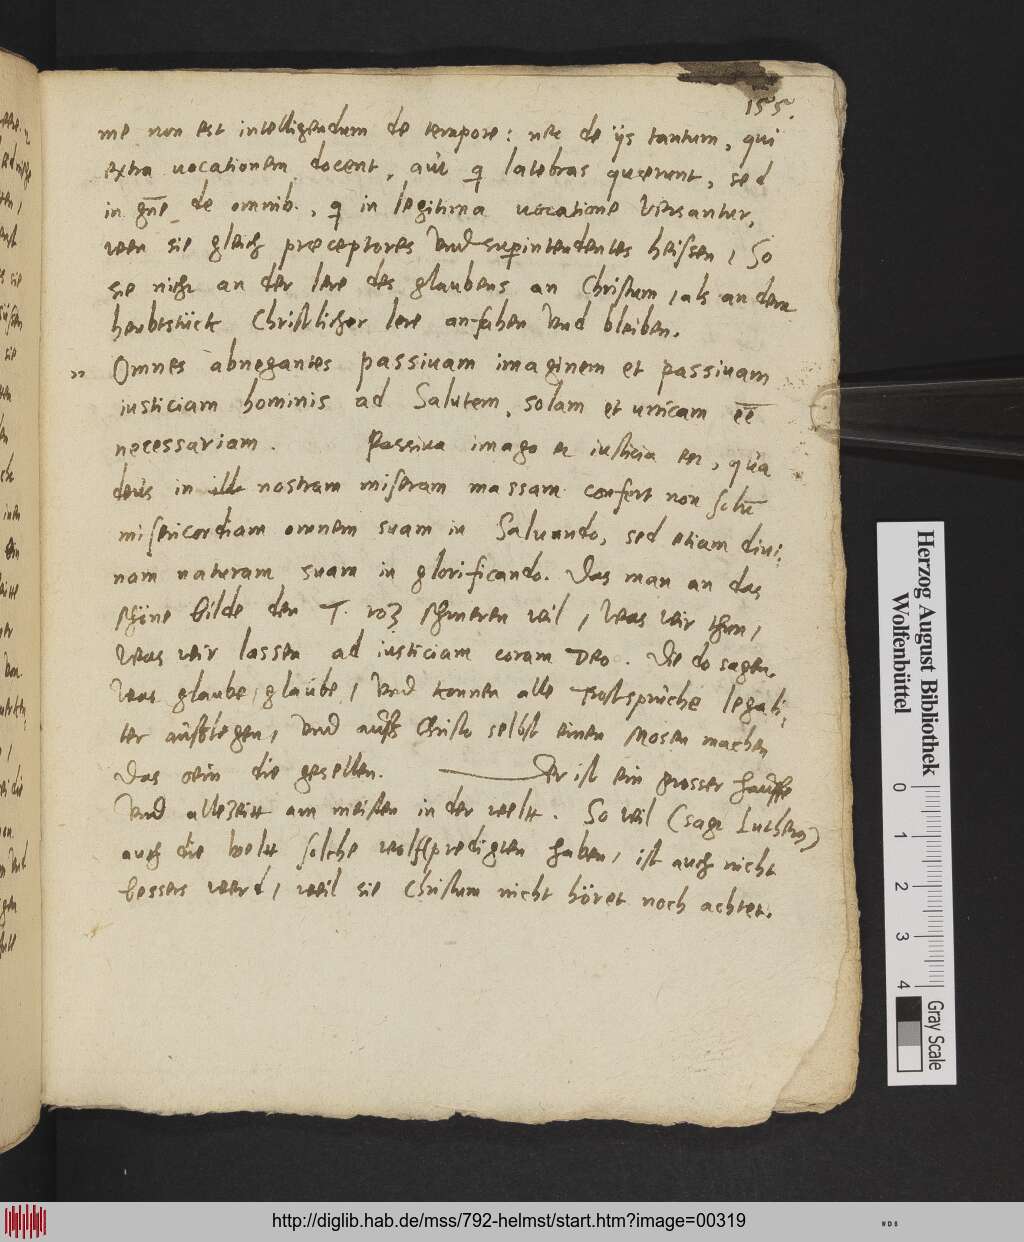 155.
me non est intelligendum de tempore: nec de ijs tantum, qui
extra uocationem docent, aut q latebras querunt, sed
in gñe de omnib., q in legitima uocatione versantur,
wen sie gleich præceptores vnd superintendentes heissen, So
sie nicht an der lere des glaubens an Christum, als an dem
heubtstück Christlicher lere anfahen vnd bleiben.
" Omnes abnegantes passiuam imaginem et passiuam
iusticiam hominis ad Salutem, solam et unicam eē
necessariam. Passiua imago et iusticia est, qua
deus in nostram miseram massam confert non solū
misericordiam omnem suam in Saluando, sed etiam diui:
nam naturam suam in glorificando. Das man an das
schöne bilde den T. rotz schmeren wil, was wir thun,
was wir lassen ad iusticiam coram Deo. Die do sagen,
was glaube, glaube, vnd konnen alle Trostsprüche legali:
ter außlegen, vnd auß Christo selbst einen Mosen machen
Das sein die gesellen. Er ist ein grosser hauffe
vnd allezeitt am meisten in der weltt. So weil (sagt Lutherus)
auch die weltt solche wolffpredigten haben, ist auch nicht
bessers werd, weil sie Christum nicht höret noch achtet.
Herzog August Bibliothek
Wolfenbüttel
0 1 2 3 4
Gray Scale
http://diglib.hab.de/mss/792-helmst/start.htm?image=00319